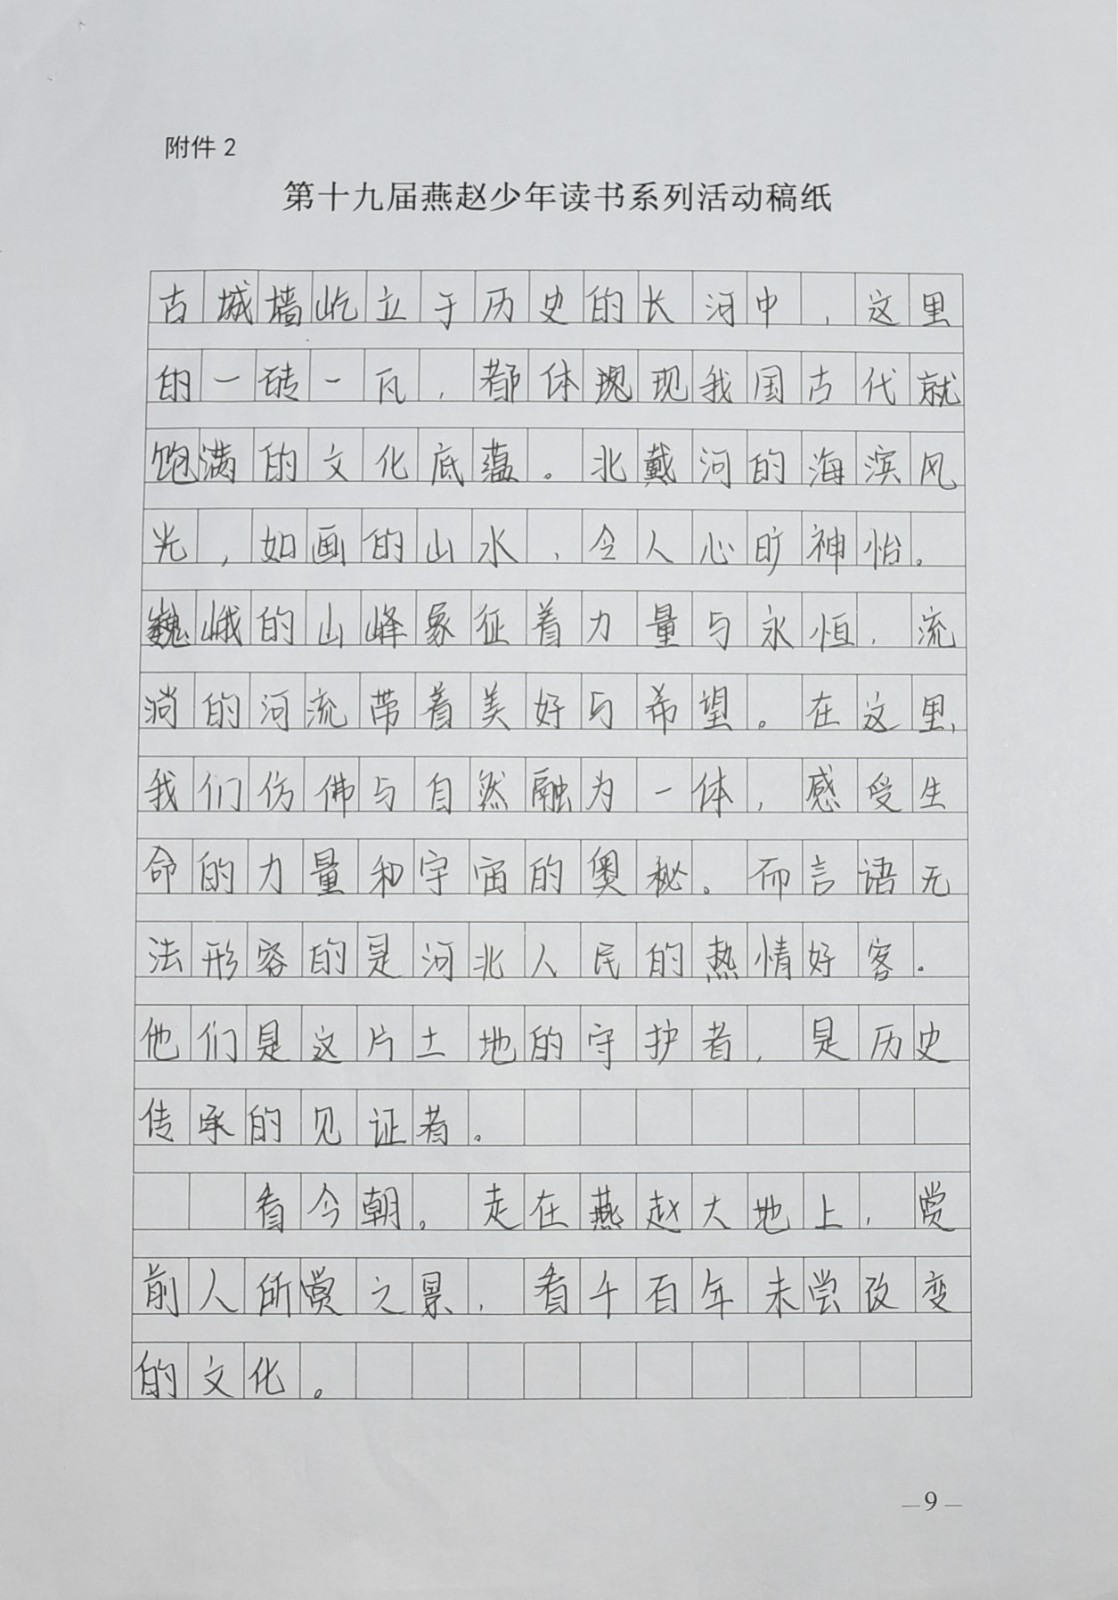 附件 2
第十九届燕赵少年读书系列活动稿纸
古城墙屹立于历史的长河中，这里
的一砖一瓦，都体现我国古代就
饱满的文化底蕴。北戴河的海滨风
光，如画的山水，令人心旷神怡。
巍峨的山峰象征着力量与永恒，流
淌的河流带着美好与希望。在这里，
我们仿佛与自然融为一体，感受生
命的力量和宇宙的奥秘。而言语无
法形容的是河北人民的热情好客。
他们是这片土地的守护者，是历史
传承的见证者。
看今朝。走在燕赵大地上，赏
前人所赏之景，看千百年未尝改变
的文化。
—9—